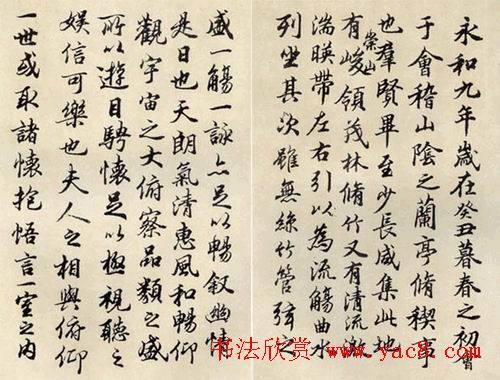 永和九年歲在癸丑暮春之初會
于會稽山陰之蘭亭脩稧事
也羣賢畢至少長咸集此地
有崇山峻領茂林脩竹又有清流激
湍暎帶左右引以為流觴曲水
列坐其次雖無絲竹管弦之
盛一觴一詠亦足以暢叙幽情
是日也天朗氣清惠風和暢仰
觀宇宙之大俯察品類之盛
所以遊目騁懷足以極視聽之
娛信可樂也夫人之相與俯仰
一世或取諸懷抱悟言一室之內
书法欣赏 www.yac8.com